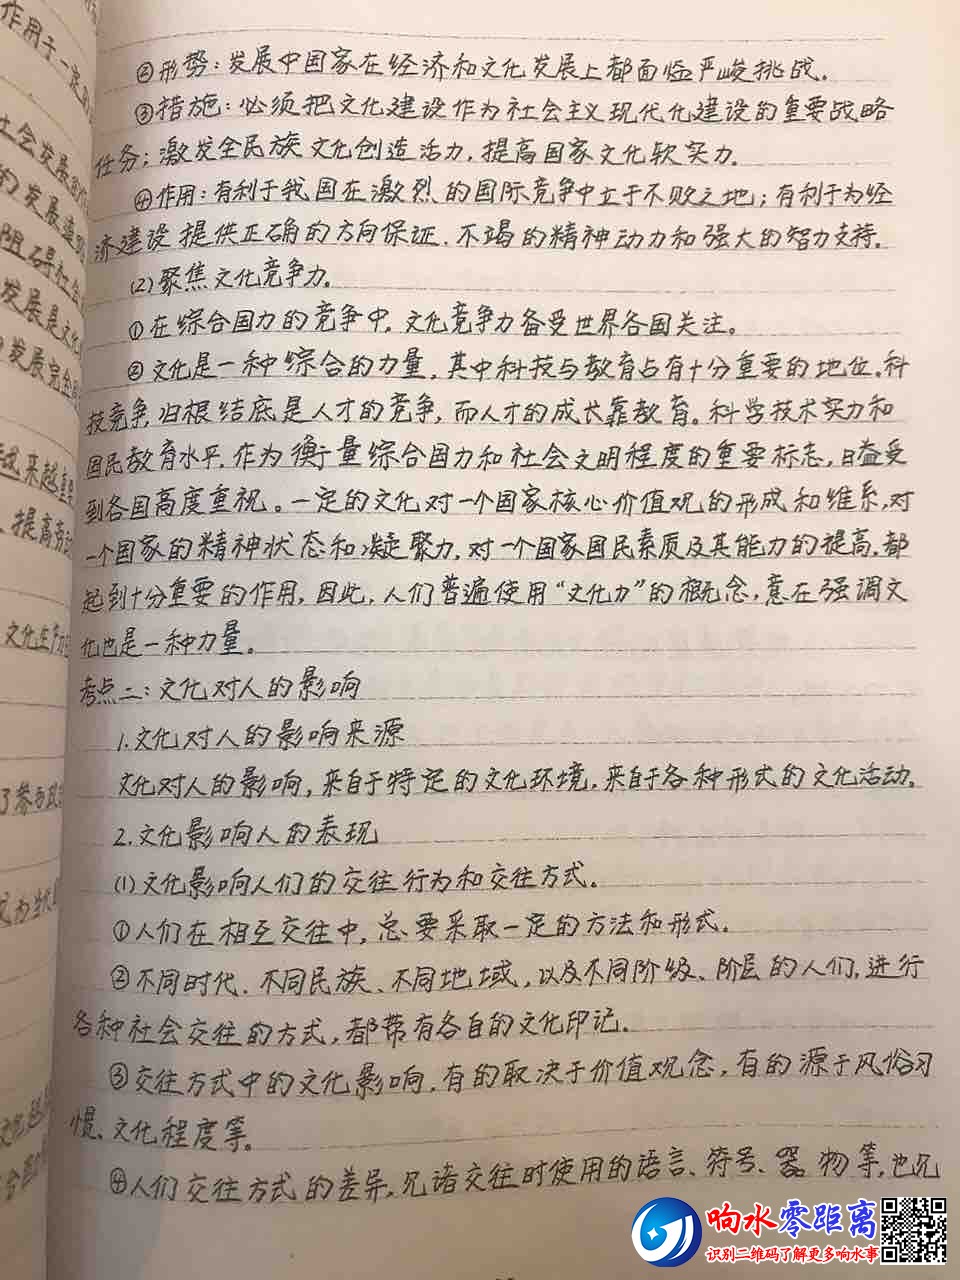 ②形势：发展中国家在经济和文化发展上都面临严峻挑战.
③措施：必须把文化建设作为社会主义现代化建设的重要战略
任务；激发全民族文化创造活力，提高国家文化软实力.
④作用：有利于我国在激烈的国际竞争中立于不败之地；有利于为经
济建设提供正确的方向保证、不竭的精神动力和强大的智力支持。
(2)聚焦文化竞争力。
①在综合国力的竞争中，文化竞争力备受世界各国关注。
②文化是一种综合的力量，其中科技与教育占有十分重要的地位。科
技竞争，归根结底是人才的竞争，而人才的成长靠教育。科学技术实力和
国民教育水平，作为衡量综合国力和社会文明程度的重要标志，日益受
到各国高度重视。一定的文化对一个国家核心价值观的形成和维系，对
一个国家的精神状态和凝聚力，对一个国家国民素质及其能力的提高，都
起到十分重要的作用，因此，人们普遍使用“文化力”的概念，意在强调文
化也是一种力量。
考点二：文化对人的影响
1.文化对人的影响来源
文化对人的影响，来自于特定的文化环境，来自于各种形式的文化活动。
2.文化影响人的表现
(1)文化影响人们的交往行为和交往方式。
①人们在相互交往中，总要采取一定的方法和形式.
②不同时代、不同民族、不同地域，以及不同阶级、阶层的人们，进行
各种社会交往的方式，都带有各自的文化印记.
③交往方式中的文化影响，有的取决于价值观念，有的源于风俗习
惯、文化程度等。
④人们交往方式的差异，见诸交往时使用的语言、符号、器物等，也见
作用于一定
社会发展
的发展
阻碍社会
发展是文化
发展完全
越来越重
提高劳动
文化生产力
了参与政治
响水零距离
识别二维码了解更多响水事